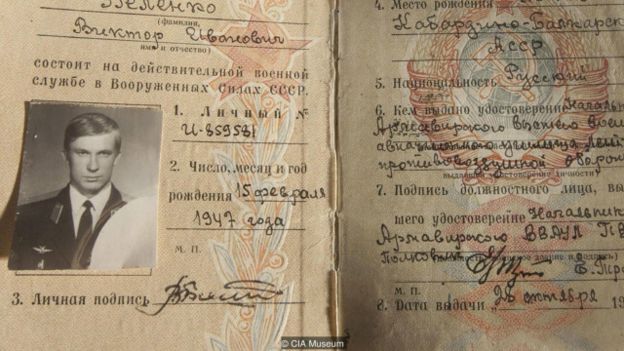 Беленко
(фамилия,
Виктор Иванович
имя и отчество)
состоит на действительной военной
службе в Вооруженных Силах СССР.
1. Личный №
И-859581
2. Число, месяц и год
рождения 15 февраля
1947 года
М. П.
3. Личная подпись
4. Место рождения
Кабардино-Балкарск
АССР
5. Национальность Русский
6. Кем выдано удостоверение Начальн
Армавирского высшего воен
авиационного училища
противовоздушной оборон
7. Подпись должностного лица, вы
шего удостоверение Начальник
Армавирского ВВАУЛ
Полковник
М. П.
8. Дата выдачи „ октября 19
© CIA Museum